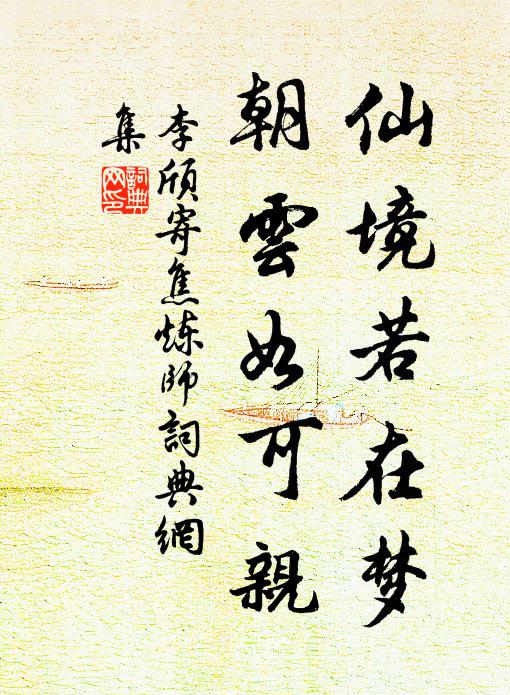 仙境若在梦
朝雲如可親
李頎寄焦炼师詞典網
集
詞典網印